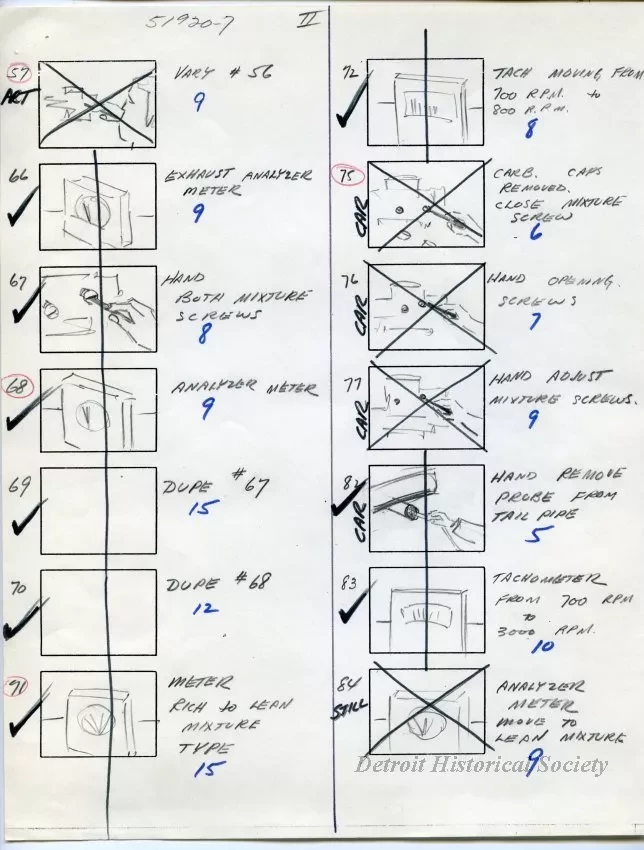 51920-7 II
57
ART
VARY # 56
9
66
EXHAUST ANALYZER
METER
9
67
HAND
BOTH MIXTURE
SCREWS
8
68
ANALYZER METER
9
69
DUPE #67
15
70
DUPE #68
12
METER
RICH to LEAN
MIXTURE
TYPE
15
72
TACH MOVING FROM
700 R.P.M. to
800 R.P.M.
8
75
CAR
CARB. CAPS
REMOVED.
CLOSE MIXTURE
SCREW
6
76
CAR
HAND OPENING.
SCREWS
7
77
CAR
HAND ADJUST
MIXTURE SCREWS.
9
82
CAR
HAND REMOVE
PROBE FROM
TAIL PIPE
5
83
TACHOMETER
FROM 700 RPM
to
3000 RPM.
10
84
STILL
ANALYZER
METER
MOVE TO
LEAN MIXTURE
9
Detroit Historical Society